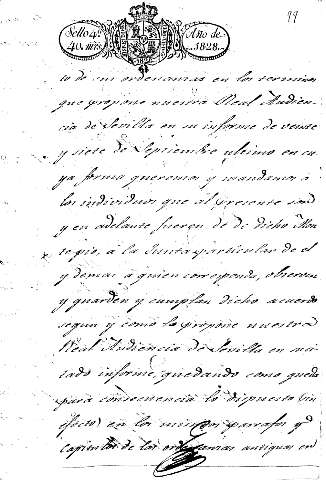 99
Sello 4º
40. mrs.
Año de
1828.
to de sus ordenanzas en los terminos
que propone nuestra Real Audien-
cia de Sevilla en su informe de veinte
y siete de Septiembre ultimo en cu
ya forma queremos y mandamos a
los individuos que al presente son
y en adelante fueren de dicho Mon
te pio, á la Junta particular de el
y demas á quien corresponda, observen
y guarden y cumplan dicho acuerdo
segun y como lo propone nuestra
Real Audiencia de Sevilla en su ci
tado informe, quedando como queda
para consecuencia lo dispuesto (sin
efecto) en los mismos parrafos y
capitulos de las ordenanzas antiguas en